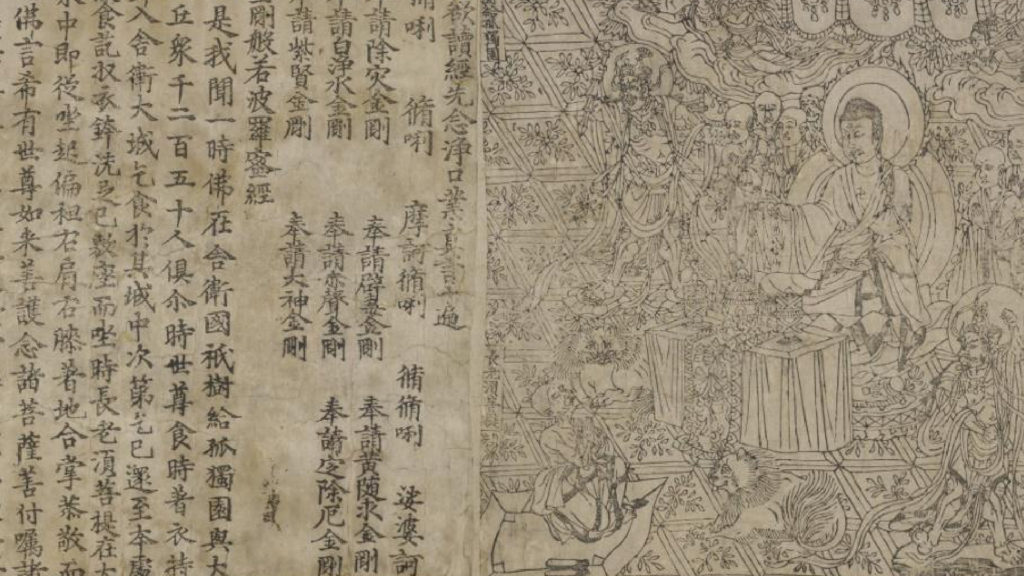 欲讀經先念淨口業真言一遍
脩唎 脩唎 摩訶脩唎 脩脩唎 娑婆訶
請除灾金剛 奉請辟毒金剛 奉請黃隨求金剛
奉請白淨水金剛 奉請赤聲金剛 奉請定除厄金剛
請紫賢金剛 奉請大神金剛
金剛般若波羅蜜經
是我聞一時佛在舍衛國祇樹給孤獨園與大
丘衆千二百五十人俱尒時世尊食時著衣持
入舍衛大城乞食於其城中次第乞已還至本處
食訖收衣鉢洗足已敷座而坐時長老湏菩提在大
衆中即從坐起偏袒右肩右膝著地合掌恭敬而
佛言希有世尊如來善護念諸菩薩善付囑諸